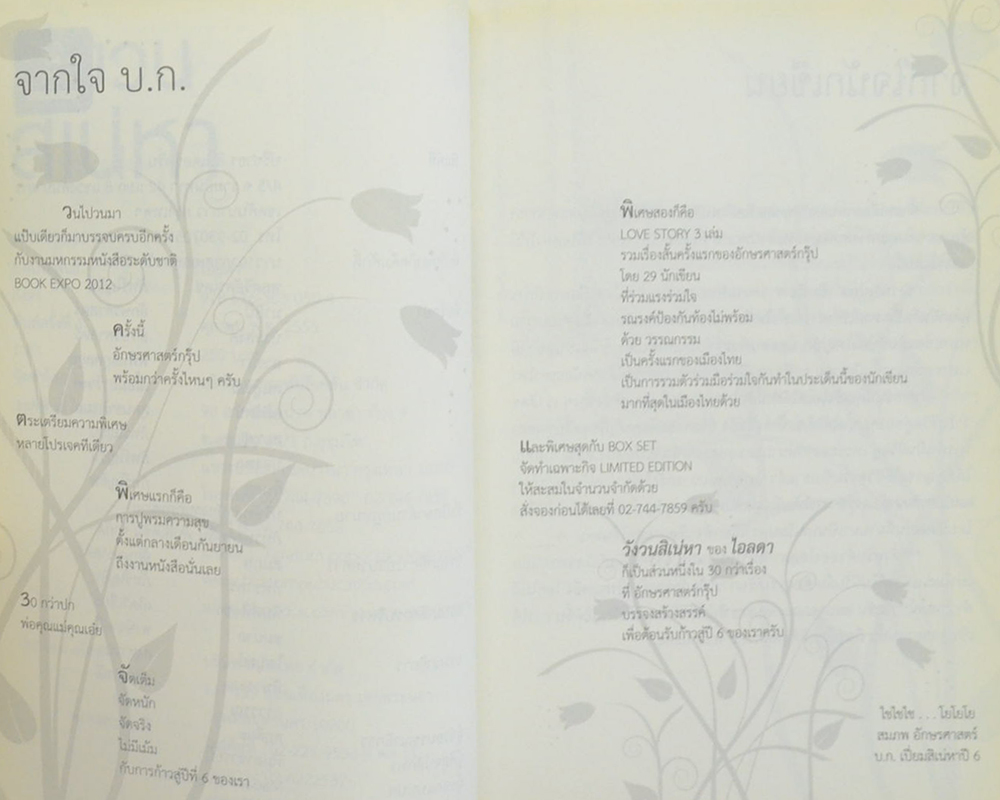 จากใจ บ.ก.
วนไปวนมา
แป๊บเดียวก็มาบรรจบครบอีกครั้ง
กับงานมหกรรมหนังสือระดับชาติ
BOOK EXPO 2012
ครั้งนี้
อักษรศาสตร์กรุ๊ป
พร้อมกว่าครั้งไหนๆ ครับ
ตระเตรียมความพิเศษ
หลายโปรเจคทีเดียว
พิเศษแรกก็คือ
การปูพรมความสุข
ตั้งแต่กลางเดือนกันยายน
ถึงงานหนังสือนั่นเลย
30 กว่าปก
พ่อคุณแม่คุณเอ๋ย
จัดเต็ม
จัดหนัก
จัดจริง
ไม่มีเม้ม
กับการก้าวสู่ปีที่ 6 ของเรา
พิเศษสองก็คือ
LOVE STORY 3 เล่ม
รวมเรื่องสั้นครั้งแรกของอักษรศาสตร์กรุ๊ป
โดย 29 นักเขียน
ที่ร่วมแรงร่วมใจ
รณรงค์ป้องกันท้องไม่พร้อม
ด้วย วรรณกรรม
เป็นครั้งแรกของเมืองไทย
เป็นการรวมตัวร่วมมือร่วมใจกันทำในประเด็นนี้ของนักเขียน
มากที่สุดในเมืองไทยด้วย
และพิเศษสุดกับ BOX SET
จัดทำเฉพาะกิจ LIMITED EDITION
ให้สะสมในจำนวนจำกัดด้วย
สั่งจองก่อนได้เลยที่ 02-744-7859 ครับ
วังวนสิเน่หา ของ ไอลดา
ก็เป็นส่วนหนึ่งใน 30 กว่าเรื่อง
ที่ อักษรศาสตร์กรุ๊ป
บรรจงสร้างสรรค์
เพื่อต้อนรับก้าวสู่ปี 6 ของเราครับ
ไชไชไช . . . โยโยโย
สมภพ อักษรศาสตร์
บ.ก. เปี่ยมสิเน่หาปี 6